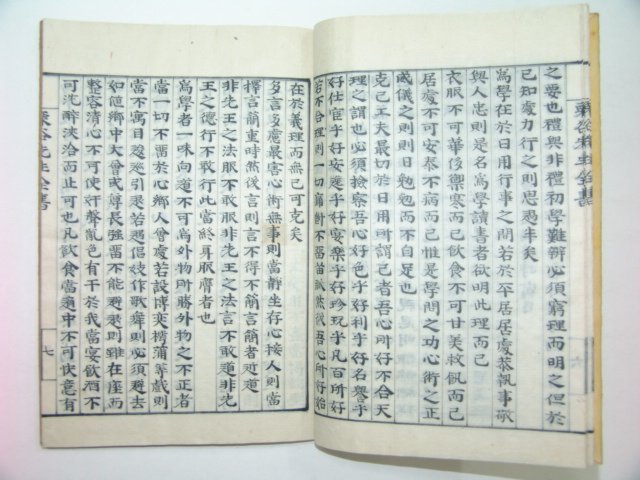 之要也禮與非禮初學難辨必須窮理而明之但於
已知處力行之則思過半矣
爲學在於日用行事之間若於平居居處恭執事敬
與人忠則是名爲學讀書者欲明此理而已
衣服不可華侈禦寒而已飮食不可甘美救飢而已
居處不可安泰不病而已惟是學問之功心術之正
威儀之則則日勉勉而不自足也
克己工夫最切於日用所謂己者吾心所好不合天
理之謂也必須檢察吾心好色乎好利乎好名譽乎
好仕宦乎好安逸乎好宴樂乎好珍玩乎凡百所好
若不合理則一切痛斷不留苗脉然後吾心所好始
在於義理而無己可克矣
多言多慮最害心術無事則當靜坐存心接人則當
擇言簡重時然後言則言不得不簡言簡者近道
非先王之法服不敢服非先王之法言不敢道非先
王之德行不敢行此當終身服膺者也
爲學者一味向道不可爲外物所勝外物之不正者
當一切不留於心鄕人會處若設博奕樗蒲等戲則
當不寓目逡巡引退若遇倡妓作歌舞則必須避去
如値鄕中大會或尊長强留不能避退則雖在座而
整容淸心不可使奸聲亂色有干於我當宴飮酒不
可沈醉浹洽而止可也凡飮食當適中不可快意有
栗谷先生全書
七